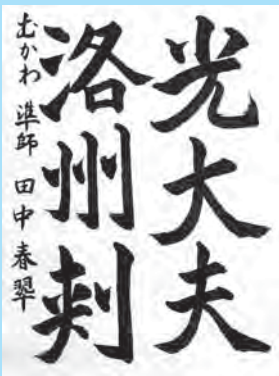 光大夫
洛州刺
むかわ 準師 田中春翠